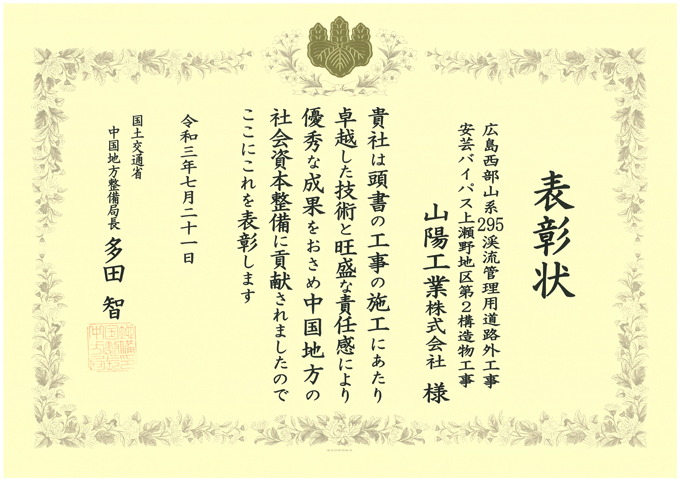 表彰状
広島西部山系295渓流管理用道路外工事
安芸バイパス上瀬野地区第2構造物工事
山陽工業株式会社 様
貴社は頭書の工事の施工にあたり
卓越した技術と旺盛な責任感により
優秀な成果をおさめ中国地方の
社会資本整備に貢献されましたので
ここにこれを表彰します
令和三年七月二十一日
国土交通省
中国地方整備局長 多田 智